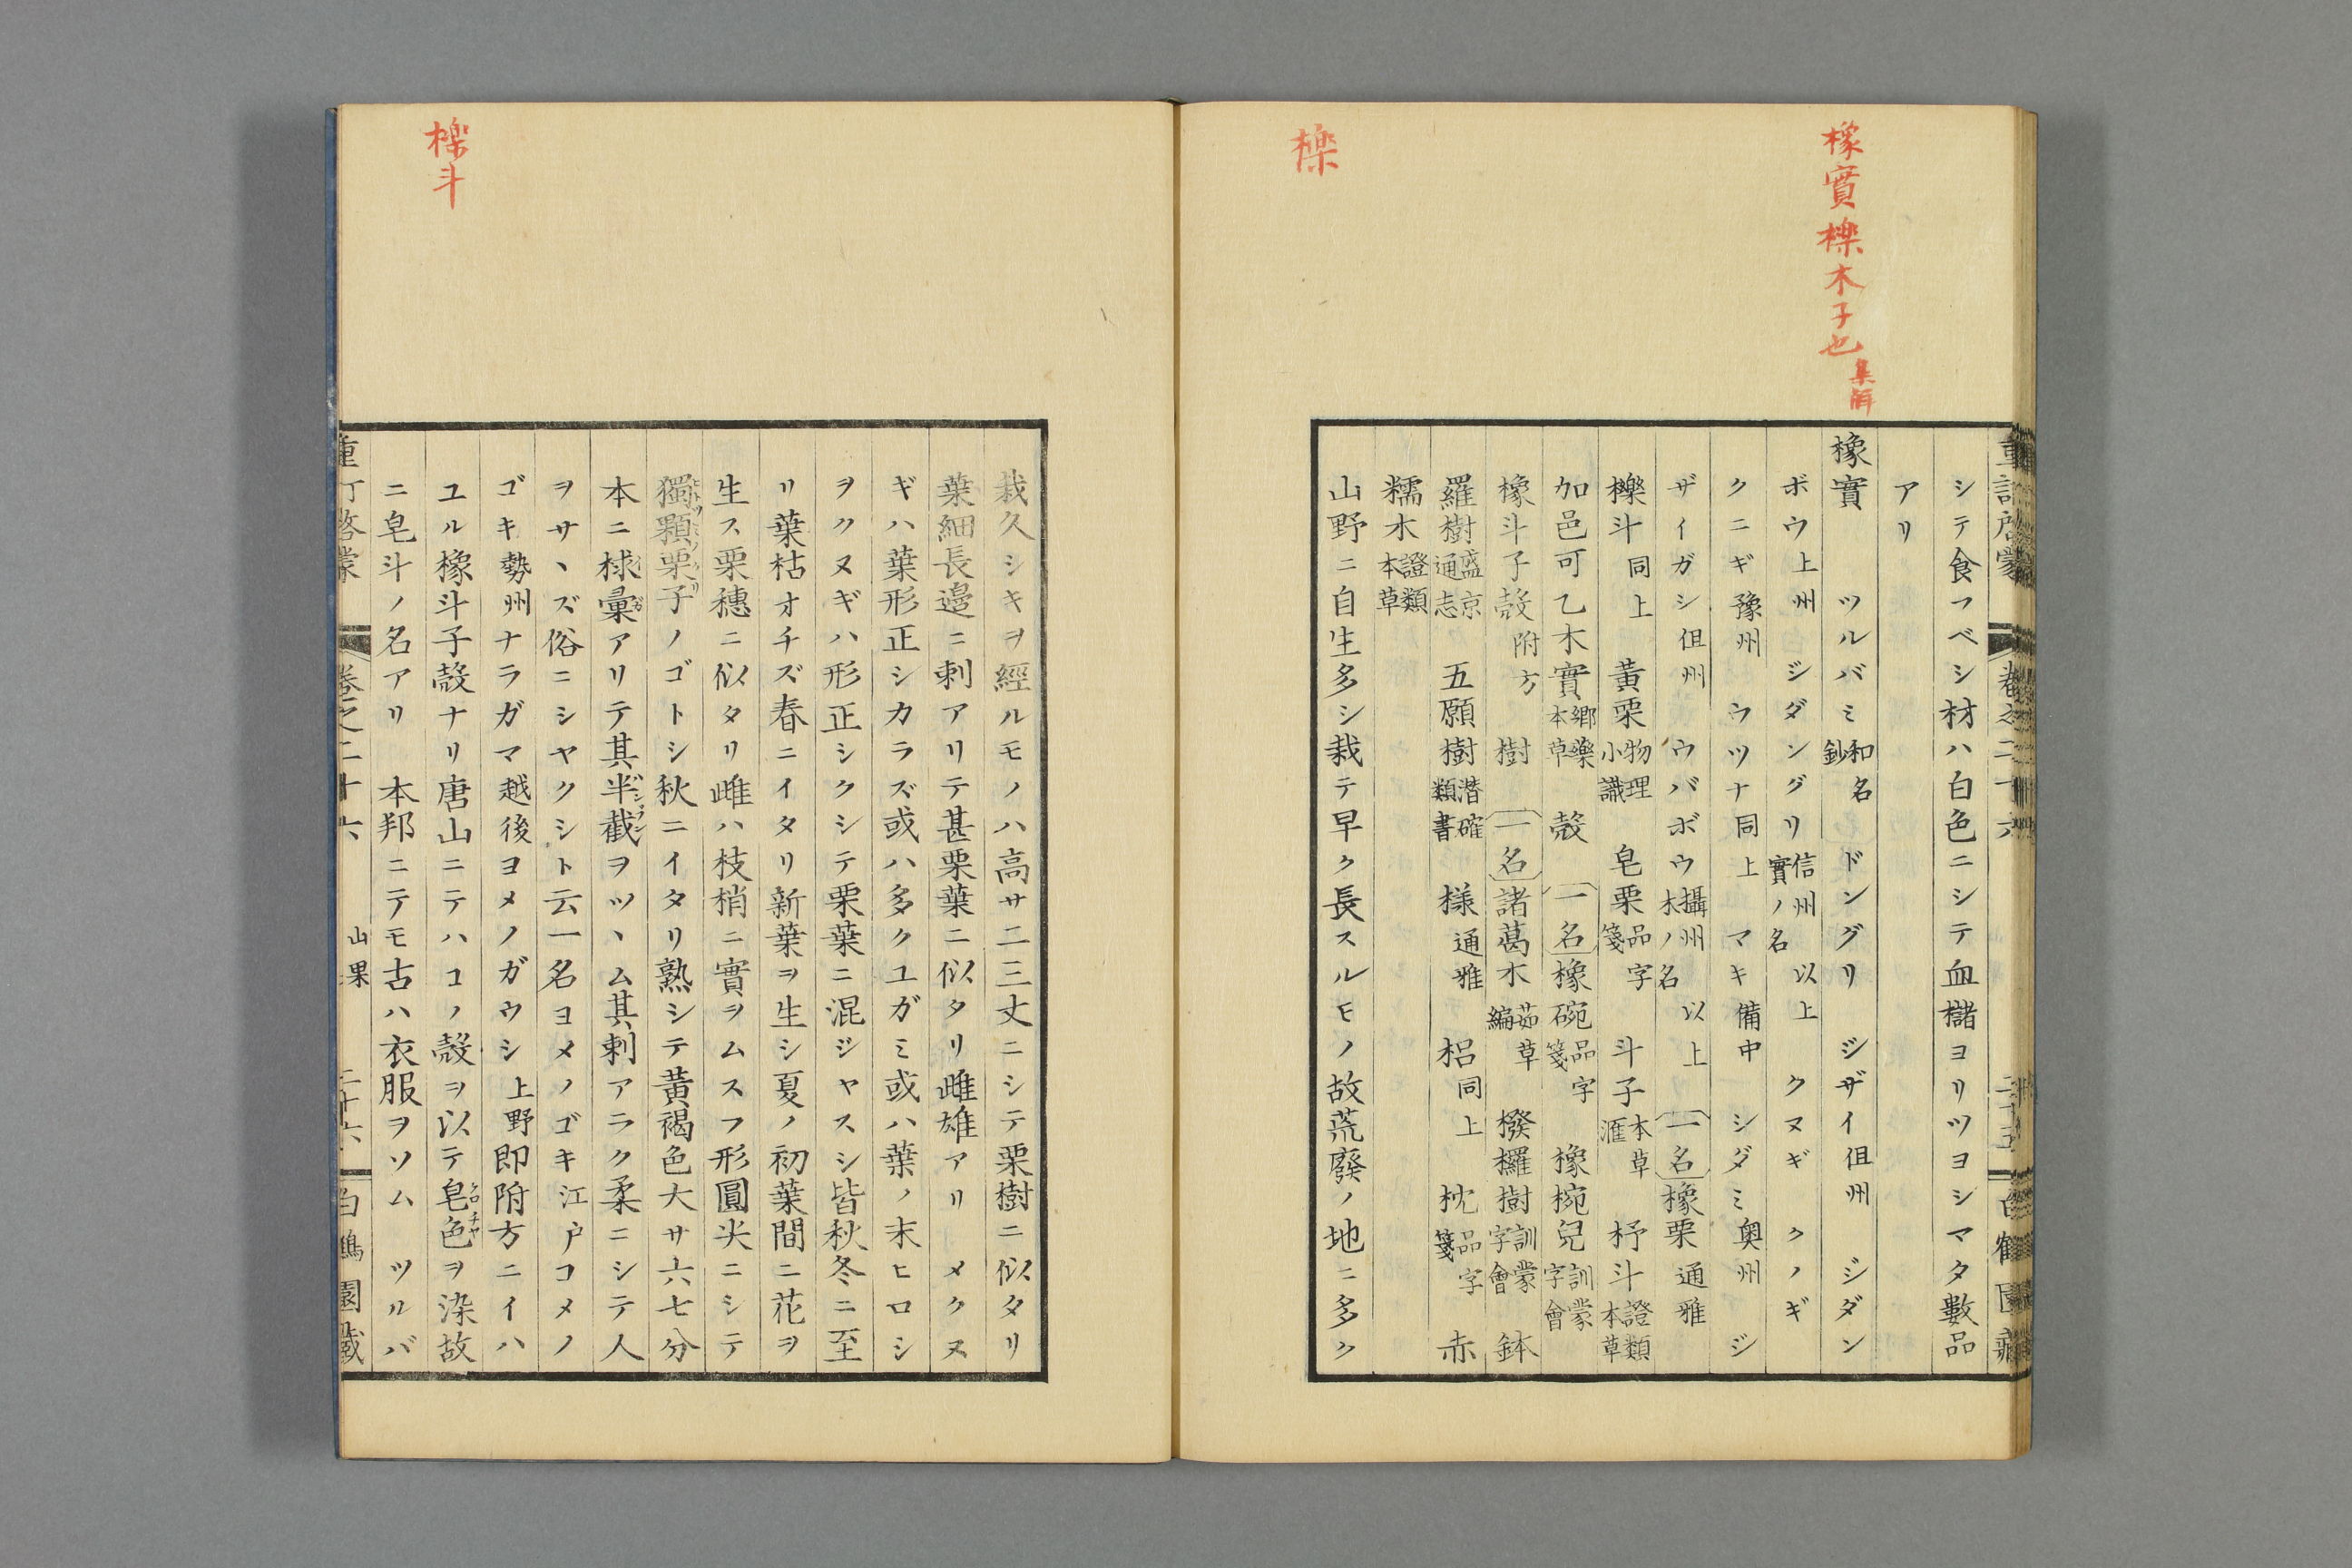 橡實櫟木子也集解
櫟
重訂啓蒙 卷之二十六 二十五 白鶴園藏
シテ食フベシ材ハ白色ニシテ血櫧ヨリツヨシマタ數品
アリ
橡實 ツルバミ和名鈔 ドングリ ジザイ伹州 ジダン
ボウ上州 ジダングリ信州實ノ名 以上 クヌギ クノギ
クニギ豫州 ウツナ同上 マキ備中 シダミ奥州 ジ
ザイガシ伹州 ウバボウ攝州木ノ名 以上 一名橡栗通雅
櫟斗同上 黃栗物理小識 皂栗品字箋 斗子本草滙 杼斗證類本草
加邑可乙木實鄉藥本草 殼 一名橡碗品字箋 橡椀兒訓蒙字會
橡斗子殼附方 樹 一名諸葛木茹草編 撥欏樹訓蒙字會 鉢
羅樹盛京通志 五願樹潛確類書 樣通雅 梠同上 枕品字箋 赤
糯木證類本草
山野ニ自生多シ栽テ早ク長スルモノ故荒廢ノ地ニ多ク
櫟斗
栽久シキヲ經ルモノハ高サ二三丈ニシテ栗樹ニ似タリ
葉細長邉ニ刺アリテ甚栗葉ニ似タリ雌雄アリ メクヌ
ギハ葉形正シカラズ或ハ多クユガミ或ハ葉ノ末ヒロシ
ヲクヌギハ形正シクシテ栗葉ニ混ジヤスシ皆秋冬ニ至
リ葉枯オチズ春ニイタリ新葉ヲ生シ夏ノ初葉間ニ花ヲ
生ス栗穗ニ似タリ雌ハ枝梢ニ實ヲムスフ形圓尖ニシテ
獨顆栗子ノゴトシ秋ニイタリ熟シテ黃褐色大サ六七分
本ニ梂彙アリテ其半截ヲツヽム其刺アラク柔ニシテ人
ヲサヽズ俗ニシヤクシト云一名ヨメノゴキ江戶コメノ
ゴキ勢州ナラガマ越後ヨメノガウシ上野即附方ニイハ
ユル橡斗子殼ナリ唐山ニテハコノ殼ヲ以テ皂色ヲ染故
ニ皂斗ノ名アリ 本邦ニテモ古ハ衣服ヲソム ツルバ
重訂啓蒙 卷之二十六 山果 二十六 白鶴園藏